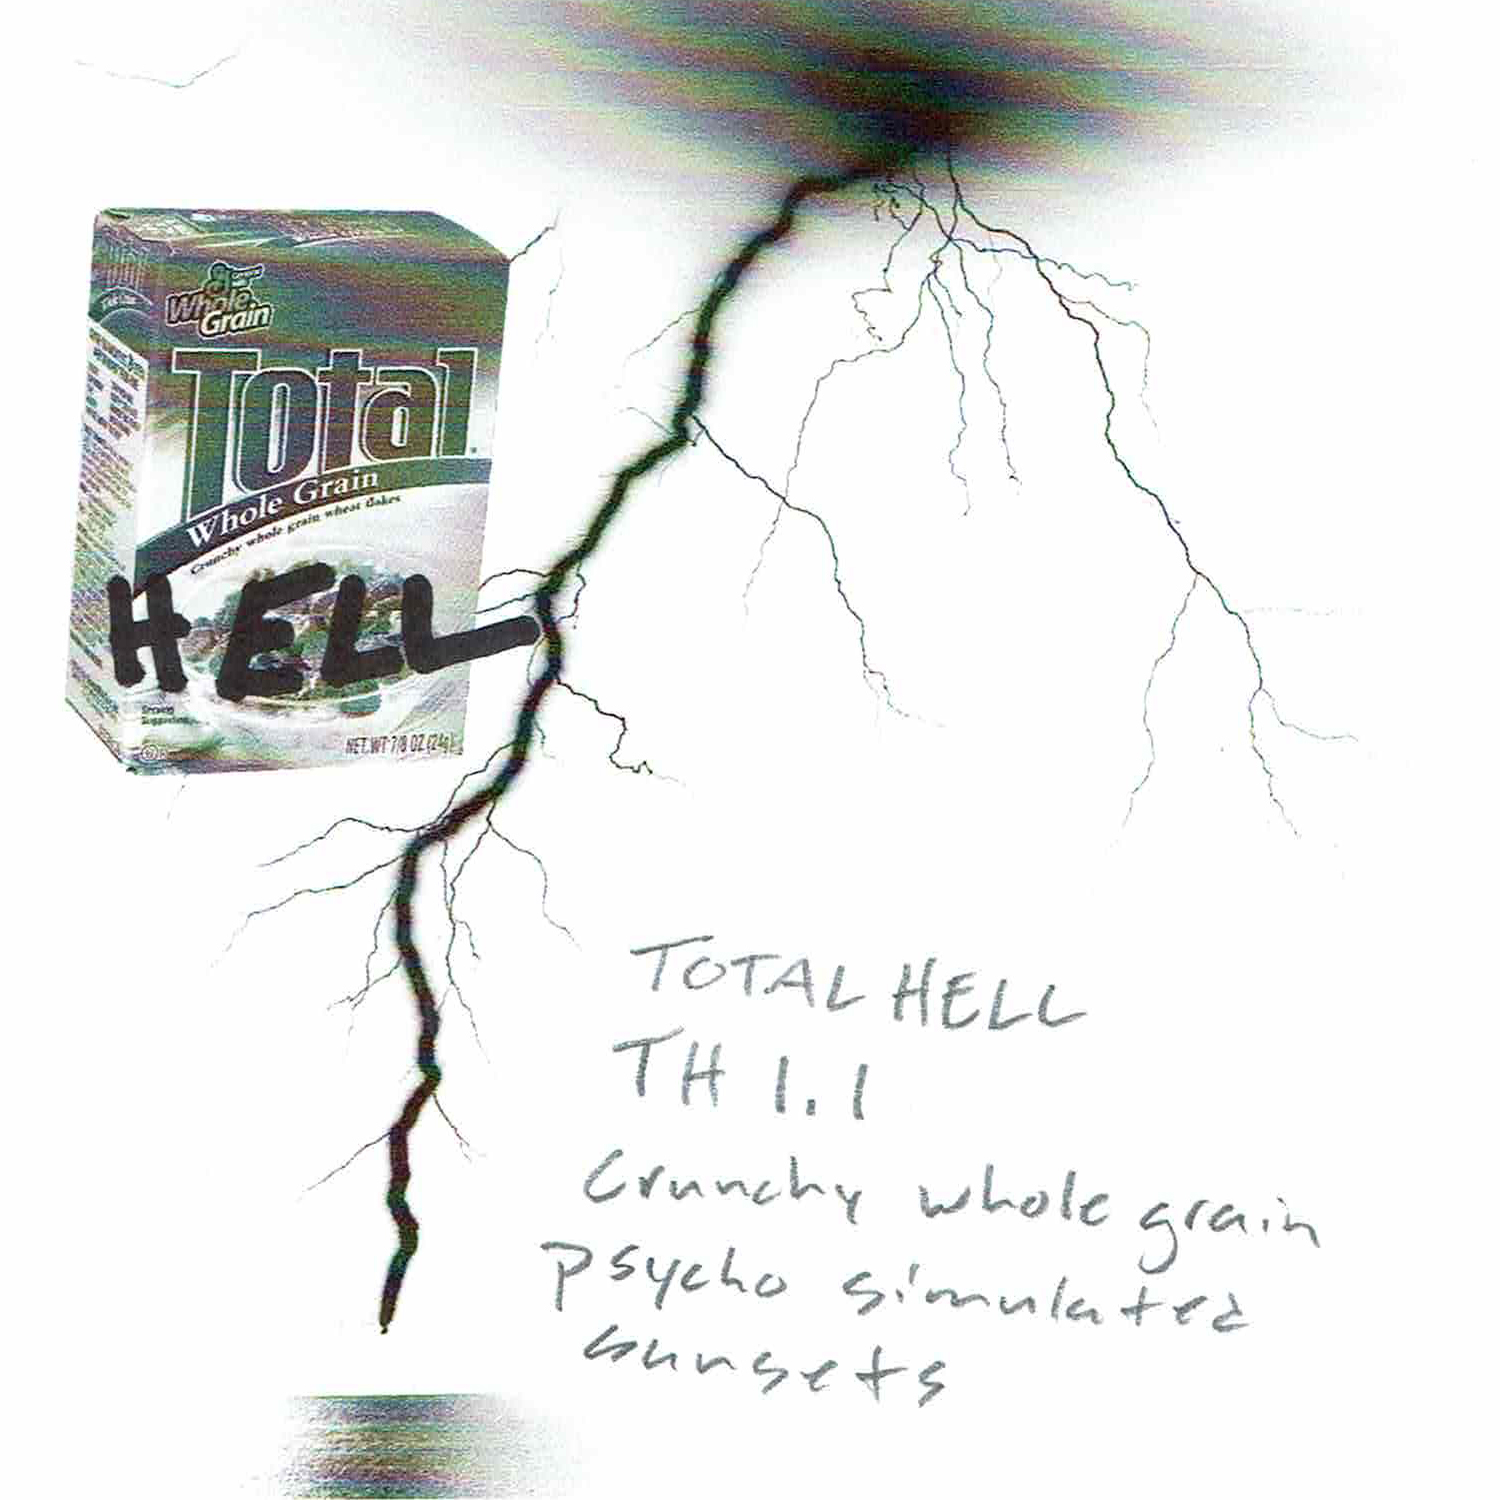 Whole
Grain
Total
Whole Grain
Crunchy whole grain wheat flakes
HELL
Serving
Suggestion
NET WT 7/8 OZ (24g)
TOTAL HELL
TH 1.1
Crunchy whole grain
psycho simulated
sunsets